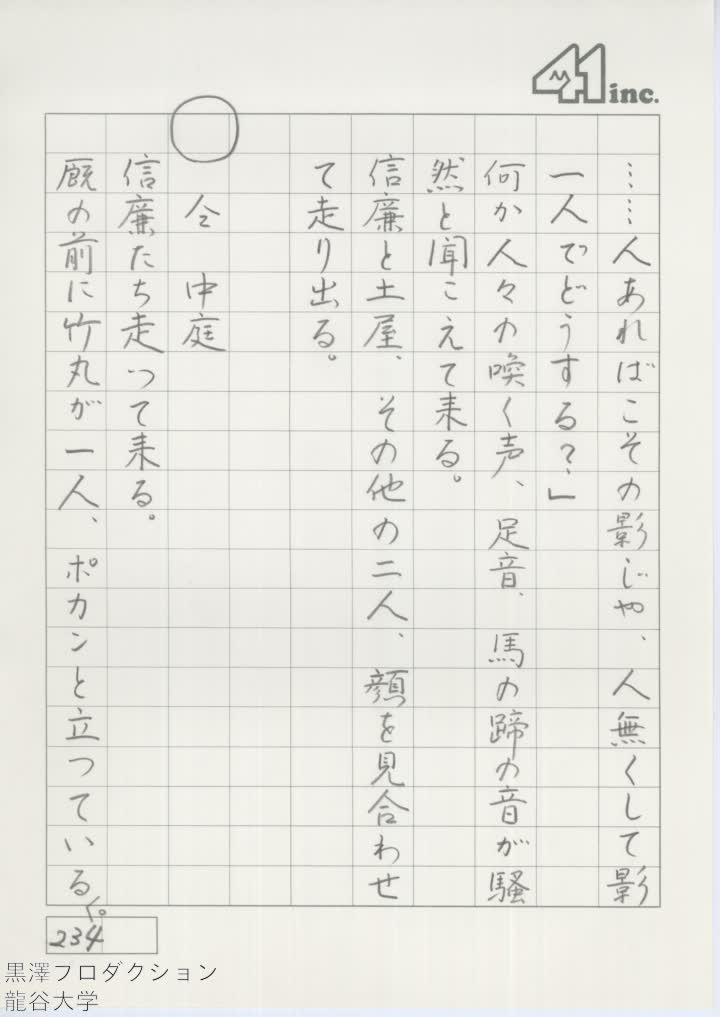 41 inc.
……人あればこその影じや、人無くして影
一人でどうする？」
何か人々の喚く声、足音、馬の蹄の音が騒
然と聞こえて来る。
信廉と土屋、その他の二人、顔を見合わせ
て走り出る。
仝 中庭
信廉たち走つて来る。
厩の前に竹丸が一人、ポカンと立つている。
234
黒澤プロダクション
龍谷大学